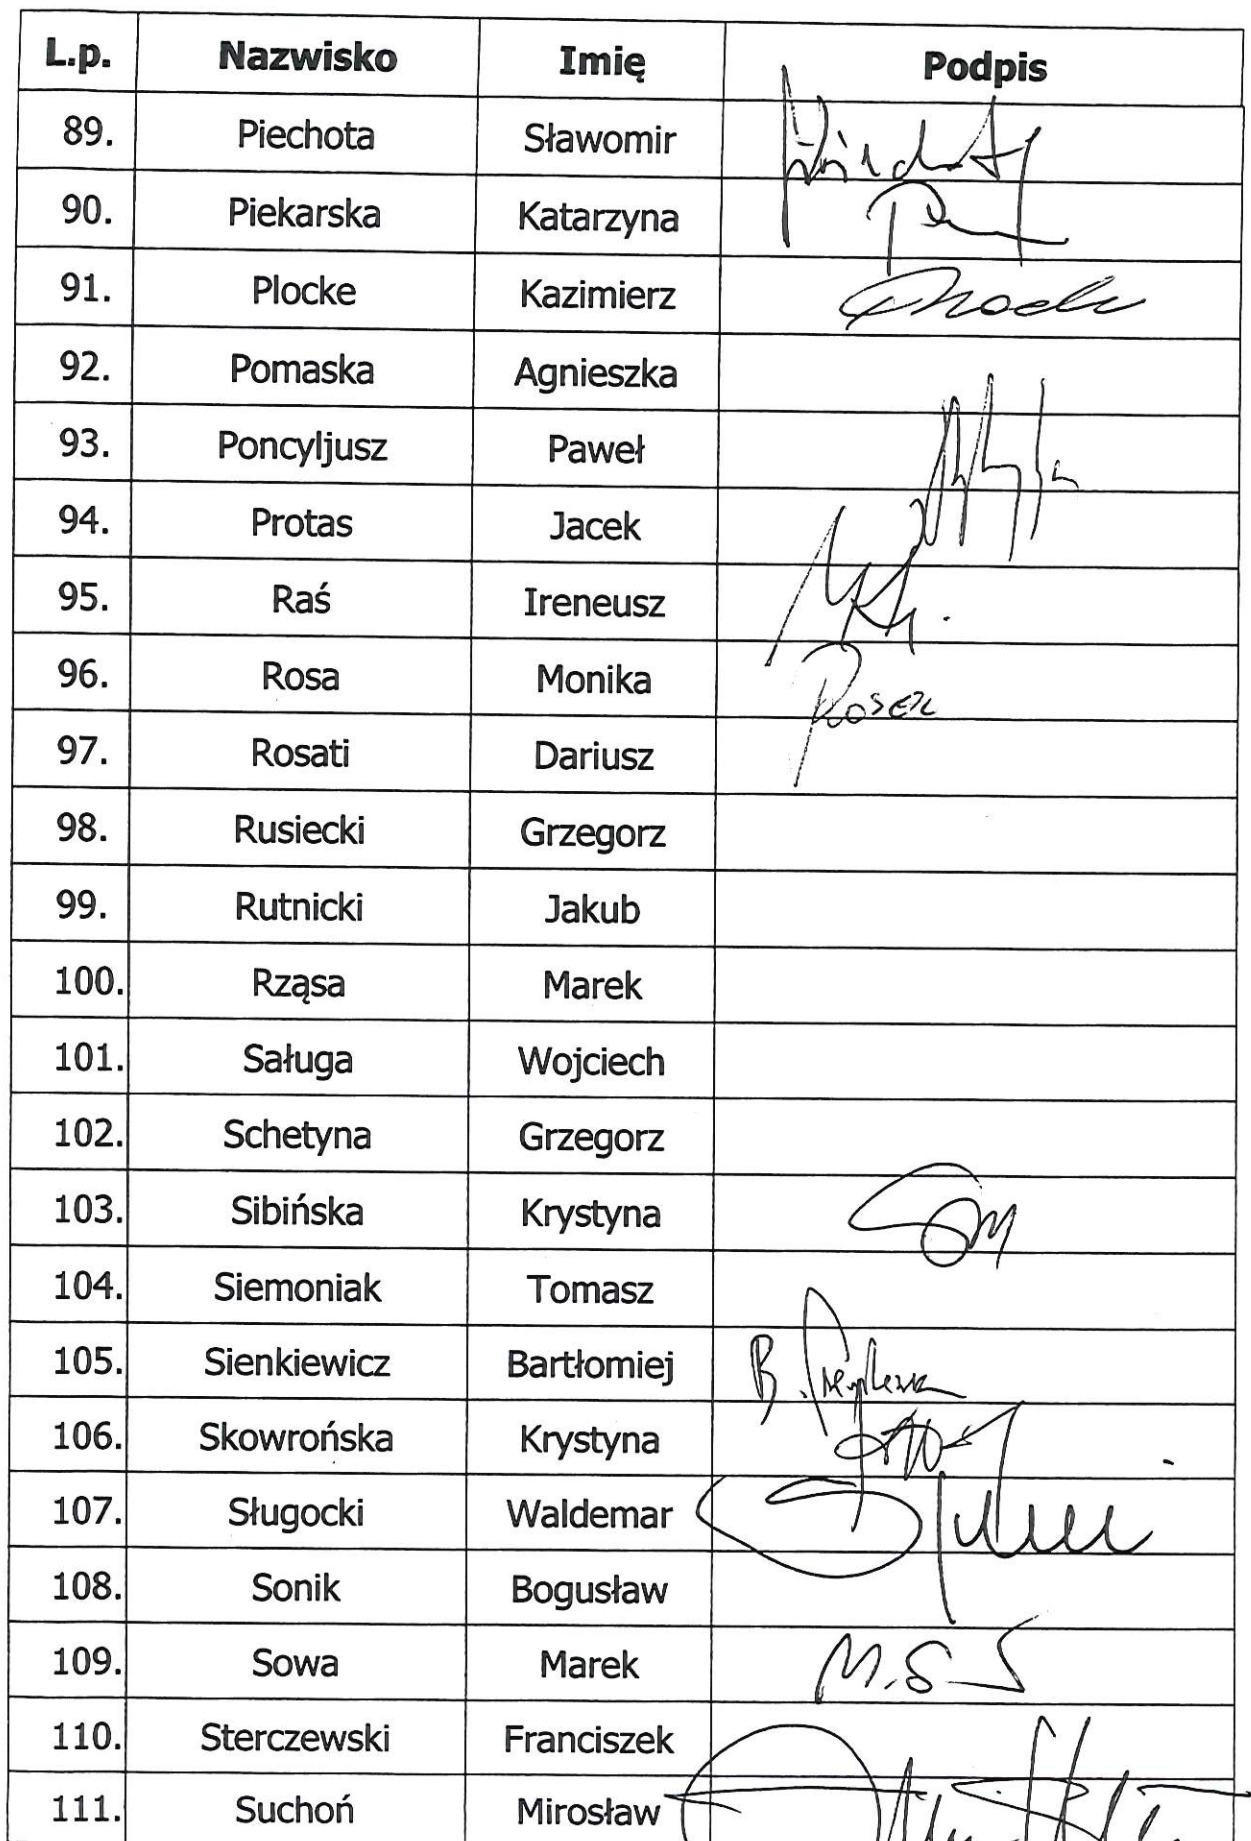 L.p. Nazwisko Imię Podpis
89. Piechota Sławomir
90. Piekarska Katarzyna
91. Plocke Kazimierz
92. Pomaska Agnieszka
93. Poncyljusz Paweł
94. Protas Jacek
95. Raś Ireneusz
96. Rosa Monika
97. Rosati Dariusz
98. Rusiecki Grzegorz
99. Rutnicki Jakub
100. Rząsa Marek
101. Saługa Wojciech
102. Schetyna Grzegorz
103. Sibińska Krystyna
104. Siemoniak Tomasz
105. Sienkiewicz Bartłomiej
106. Skowrońska Krystyna
107. Sługocki Waldemar
108. Sonik Bogusław
109. Sowa Marek
110. Sterczewski Franciszek
111. Suchoń Mirosław